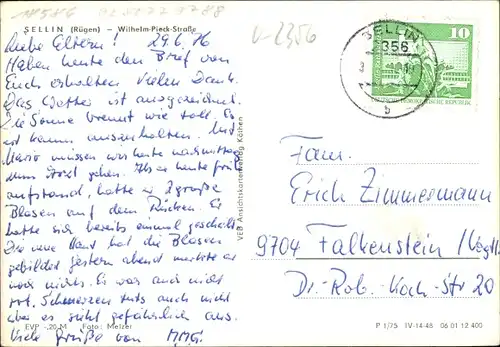 SELLIN (Rügen) – Wilhelm-Pieck-Straße
Liebe Eltern! 29.6.76
Haben heute den Brief von
Euch erhalten Vielen Dank.
Das Wetter ist ausgezeichnet.
Die Sonne brennt wie toll. Es
ist kaum auszuhalten. Mit
Mario mussen wir heute nachmittag
zum Arzt gehen. Als er heute früh
aufstand, hatte er 2 große
Blasen auf dem Rücken. Er
hatte sich bereits einmal geschält.
Die neue Haut hat die Blasen
gebildet gestern abend merkte er
noch nichts. Es war auch nicht
rot. Schmerzen tuts auch nicht
aber es sieht gefährlich aus.
Viele Grüße von MMG.
EVP -,20 M Foto: Melzer
VEB Ansichtskartenverlag Köthen
V-2356
SELLIN
2356
b
10
DEUTSCHE DEMOKRATISCHE REPUBLIK
Fam.
Erich Zimmermann
9704 Falkenstein /Vogtl.
Dr.-Rob.-Koch-Str 20
P 1/75 IV-14-48 06 01 12 400